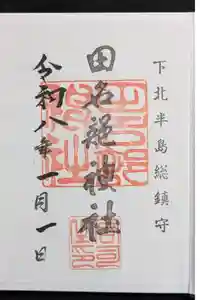 下北半島総鎮守
田名部神社
令和八年一月一日